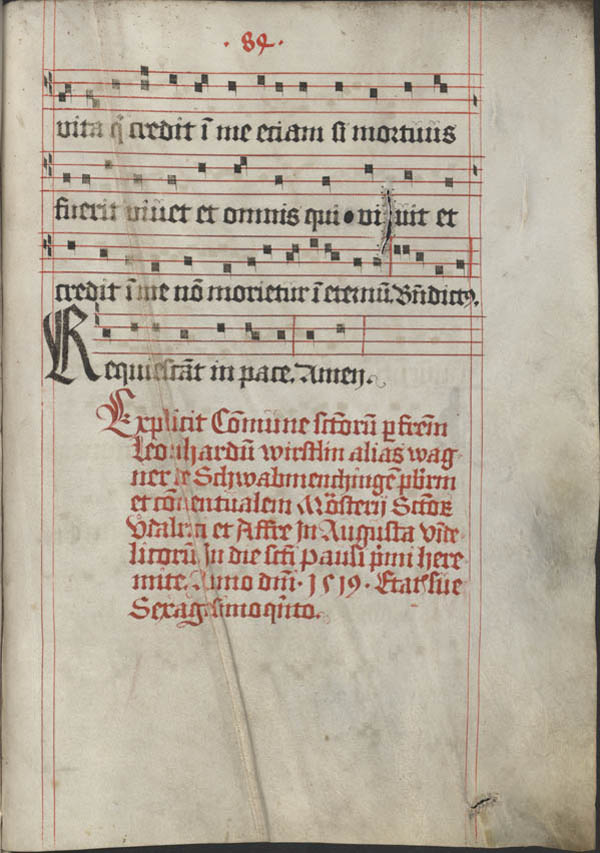 · 84 ·
vita q̄ credit ī me etiam si mortuus
fuerit viuet et omnis qui vi uit et
credit ī me nō morietur ī eternū. Bn̄dictꝰ.
Requiescāt in pace. Amen.
Explicit Cōmune sctōrū ꝑ frēm
Leonhardū wirstlin alias wag
ner de Schwabmenchingē pb̄rm
et cōuentualem Mōsterij Sctōꝝ
Vdalrici et Affre In Augusta vīde
licorū in die scti Pauli p̄mi here
mite. Anno dm̄i · 1519 · Etatꝭ sue
Sexagesimoqīto.